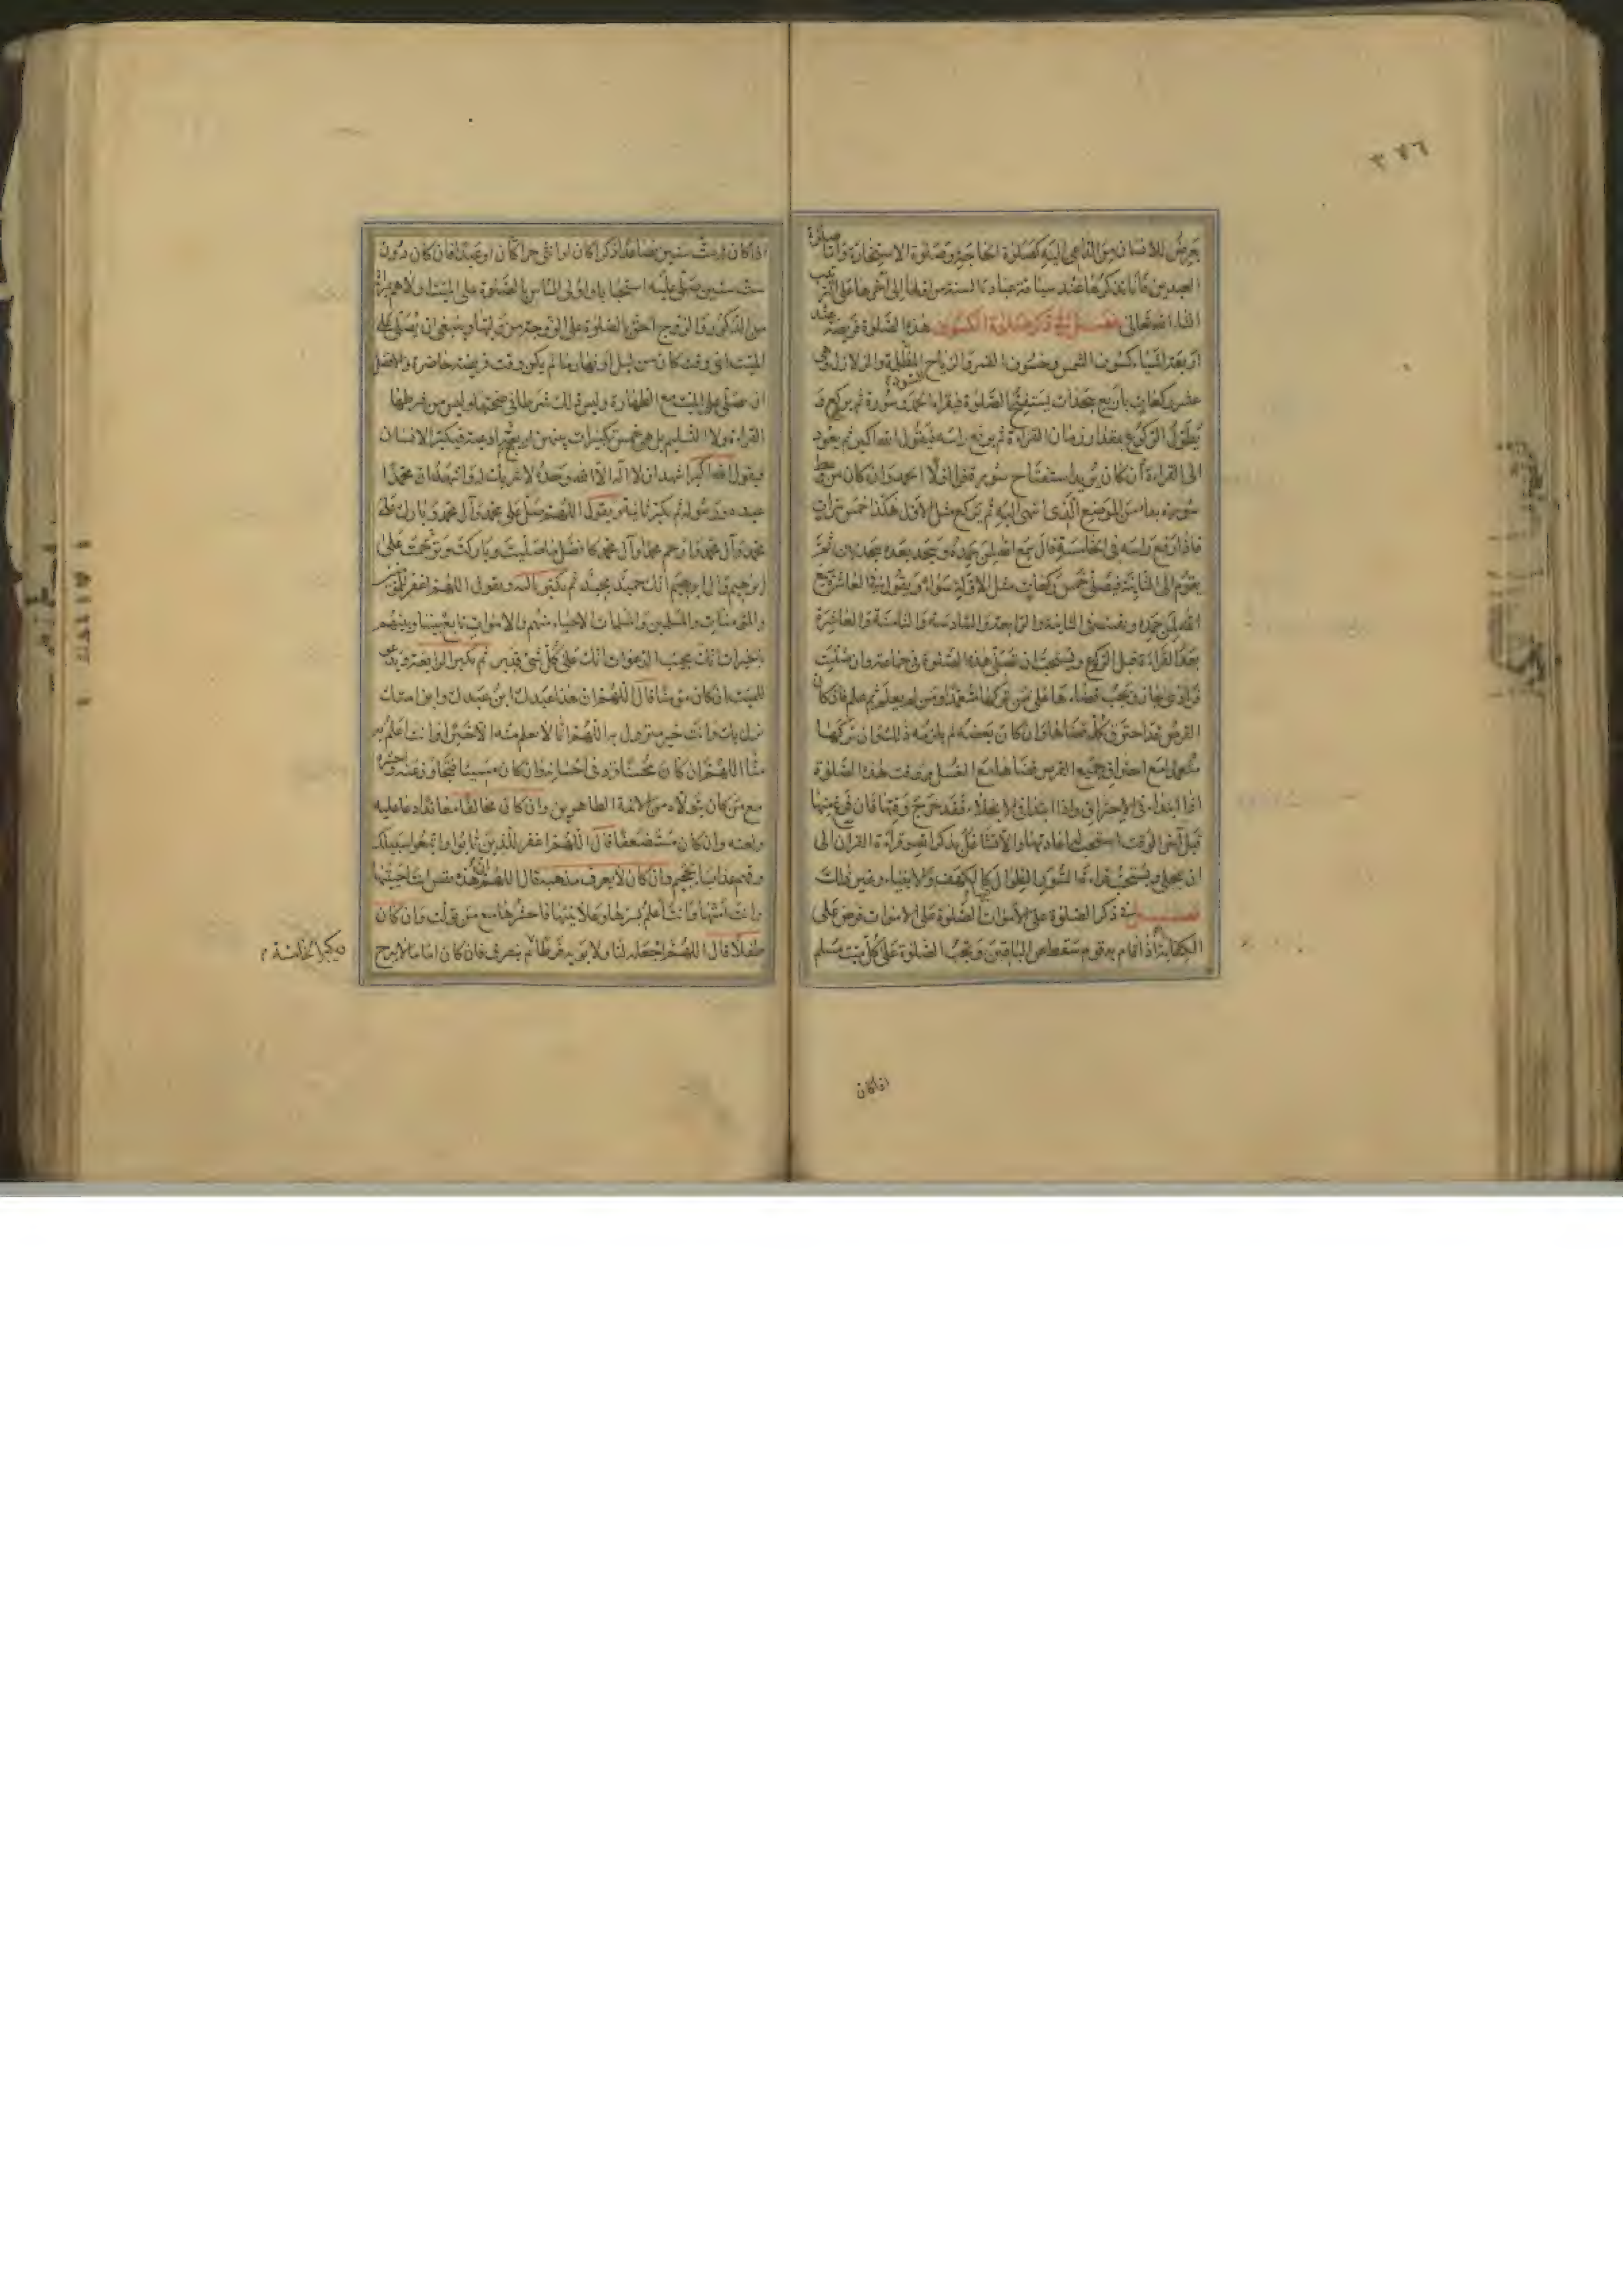 ٣٧٦
يعرض للانسان من الدّاعى اليه كصلوة الحاجة وصلوة الاستخارة وامّا صلوة
العيدين فانا نذكرها عند سياقة عبادات السنة من اولها الى آخرها على الترتيب
انشاء الله تعالى فصل فى ذكر صلوة الكسوف هذه الصلوة فريضة عند
اربعة اشياء كسوف الشمس وخسوف القمر والرياح المظلمة السود والزلازل وهى
عشر ركعات باربع سجدات يستفتح الصّلوة فيقراء الحمد وسورة ثم يركع و
يطول الركوع بمقدار زمان القراءة ثم يرفع راسه فيقول الله اكبر ثم يعود
الى القراءة فان كان يريد استفتاح سورة قرا اولا الحمد وان كان من وسط
سورة بدا من الموضع الّذى انتهى اليه ثم يركع مثل الاول هكذا خمس مرّات
فاذا رفع راسه فى الخامسة قال سمع الله لمن حمده ويسجد بعده سجدتين ثمّ
يقوم الى الثانية فيصلى خمس ركعات مثل الاولة سواء ويقول فى العاشر سمع
الله لمن حمده ويقنت فى الثانية والرابعة والسّادسة والثامنة والعاشرة
بعد القراءة قبل الركوع ويستحبّ ان تصلى هذه الصلوة فى جماعة وان صليت
فرادى جاز ويجب قضاءها على من تركها متعمّدا ومن لم يعلم ثم علم فان كان
القرص قد احترق كلّه قضاها وان كان بعضه لم يلزمه ذلك وان تركها
متعمدا مع احتراق جميع القرص قضاها مع الغسل ووقت هذه الصّلوة
اذا ابتداء فى الاحتراق واذا ابتداء فى الانجلاء فقد خرج وقتها فان فرغ منها
قبل آخر الوقت استحب له اعادتها والا تشاغل بذكر الله وقراءة القرآن الى
ان ينجلى ويستحب قراءة السّور الطوال فيها كالكهف والانبياء وغير ذلك
فصل فى ذكر الصلوة على الاموات الصّلوة على الاموات فرض على
الكفاية اذا قام به قوم سقط عن الباقين وتجب الصّلوة على كلّ ميّت مسلم
اذا كان
اذا كان له ستّ سنين فصاعدا ذكرا كان او انثى حرا كان او عبدا فان كان دون
ستّ سنين صلّى عليه استحبابا واولى الناس بالصّلوة على الميت اولاهم بميراثه
من الذكور والزوج احق بالصّلوة على الزوجة من وليها وينبغى ان يصلى على
الميت اىّ وقت كان من ليل او نهار ما لم يكن وقت فريضة حاضرة والافضل
ان يصلّى على الميت مع الطهارة وليس ذلك شرطا فى صحتها وليس من شرطها
القراءة ولا التسليم بل هى خمس تكبيرات بينهن اربعة ادعية فيكبّر الانسان
فيقول الله اكبر اشهد ان لا اله الّا الله وحده لا شريك له واشهد ان محمّدا
عبده ورسوله ثم يكبر ثانية ويقول اللهم صلّ على محمّد وآل محمّد وبارك على
محمّد وآل محمّد وارحم محمّدا وآل محمّد كافضل ما صلّيت وباركت وترحّمت على
ابرهيم وآل ابرهيم انك حميد مجيد ثم يكبر ثالثة ويقول اللهم اغفر للمؤمنين
والمؤمنات والمسلمين والمسلمات الاحياء منهم والاموات تابع بيننا وبينهم
بالخيرات انك مجيب الدعوات انك على كلّ شئ قدير ثم يكبر الرابعة ويدعو
للميت ان كان مؤمنا قال اللهم ان هذا عبدك ابن عبدك وابن امتك
نزل بك وانت خير منزول به اللهم انا لا نعلم منه الّا خيرا وانت اعلم به
منّا اللهم ان كان محسنا فزد فى احسانه وان كان مسيئا فتجاوز عنه واحشره
مع من كان يتولاه من الائمة الطاهرين وان كان مخالفا معاندا دعا عليه
ولعنه وان كان مستضعفا قال اللهم اغفر للّذين تابوا واتبعوا سبيلك
وقهم عذاب الجحيم وان كان لا يعرف مذهبه قال اللهم ان هذه نفس انت احييتها
وانت امتّها وانت اعلم بسرها وعلانيتها فاحشرها مع من تولت وان كان
طفلا قال اللهم اجعله لنا ولابويه فرطا ثم ينصرف فان كان اماما لا يبرح
ويكبر الخامسة